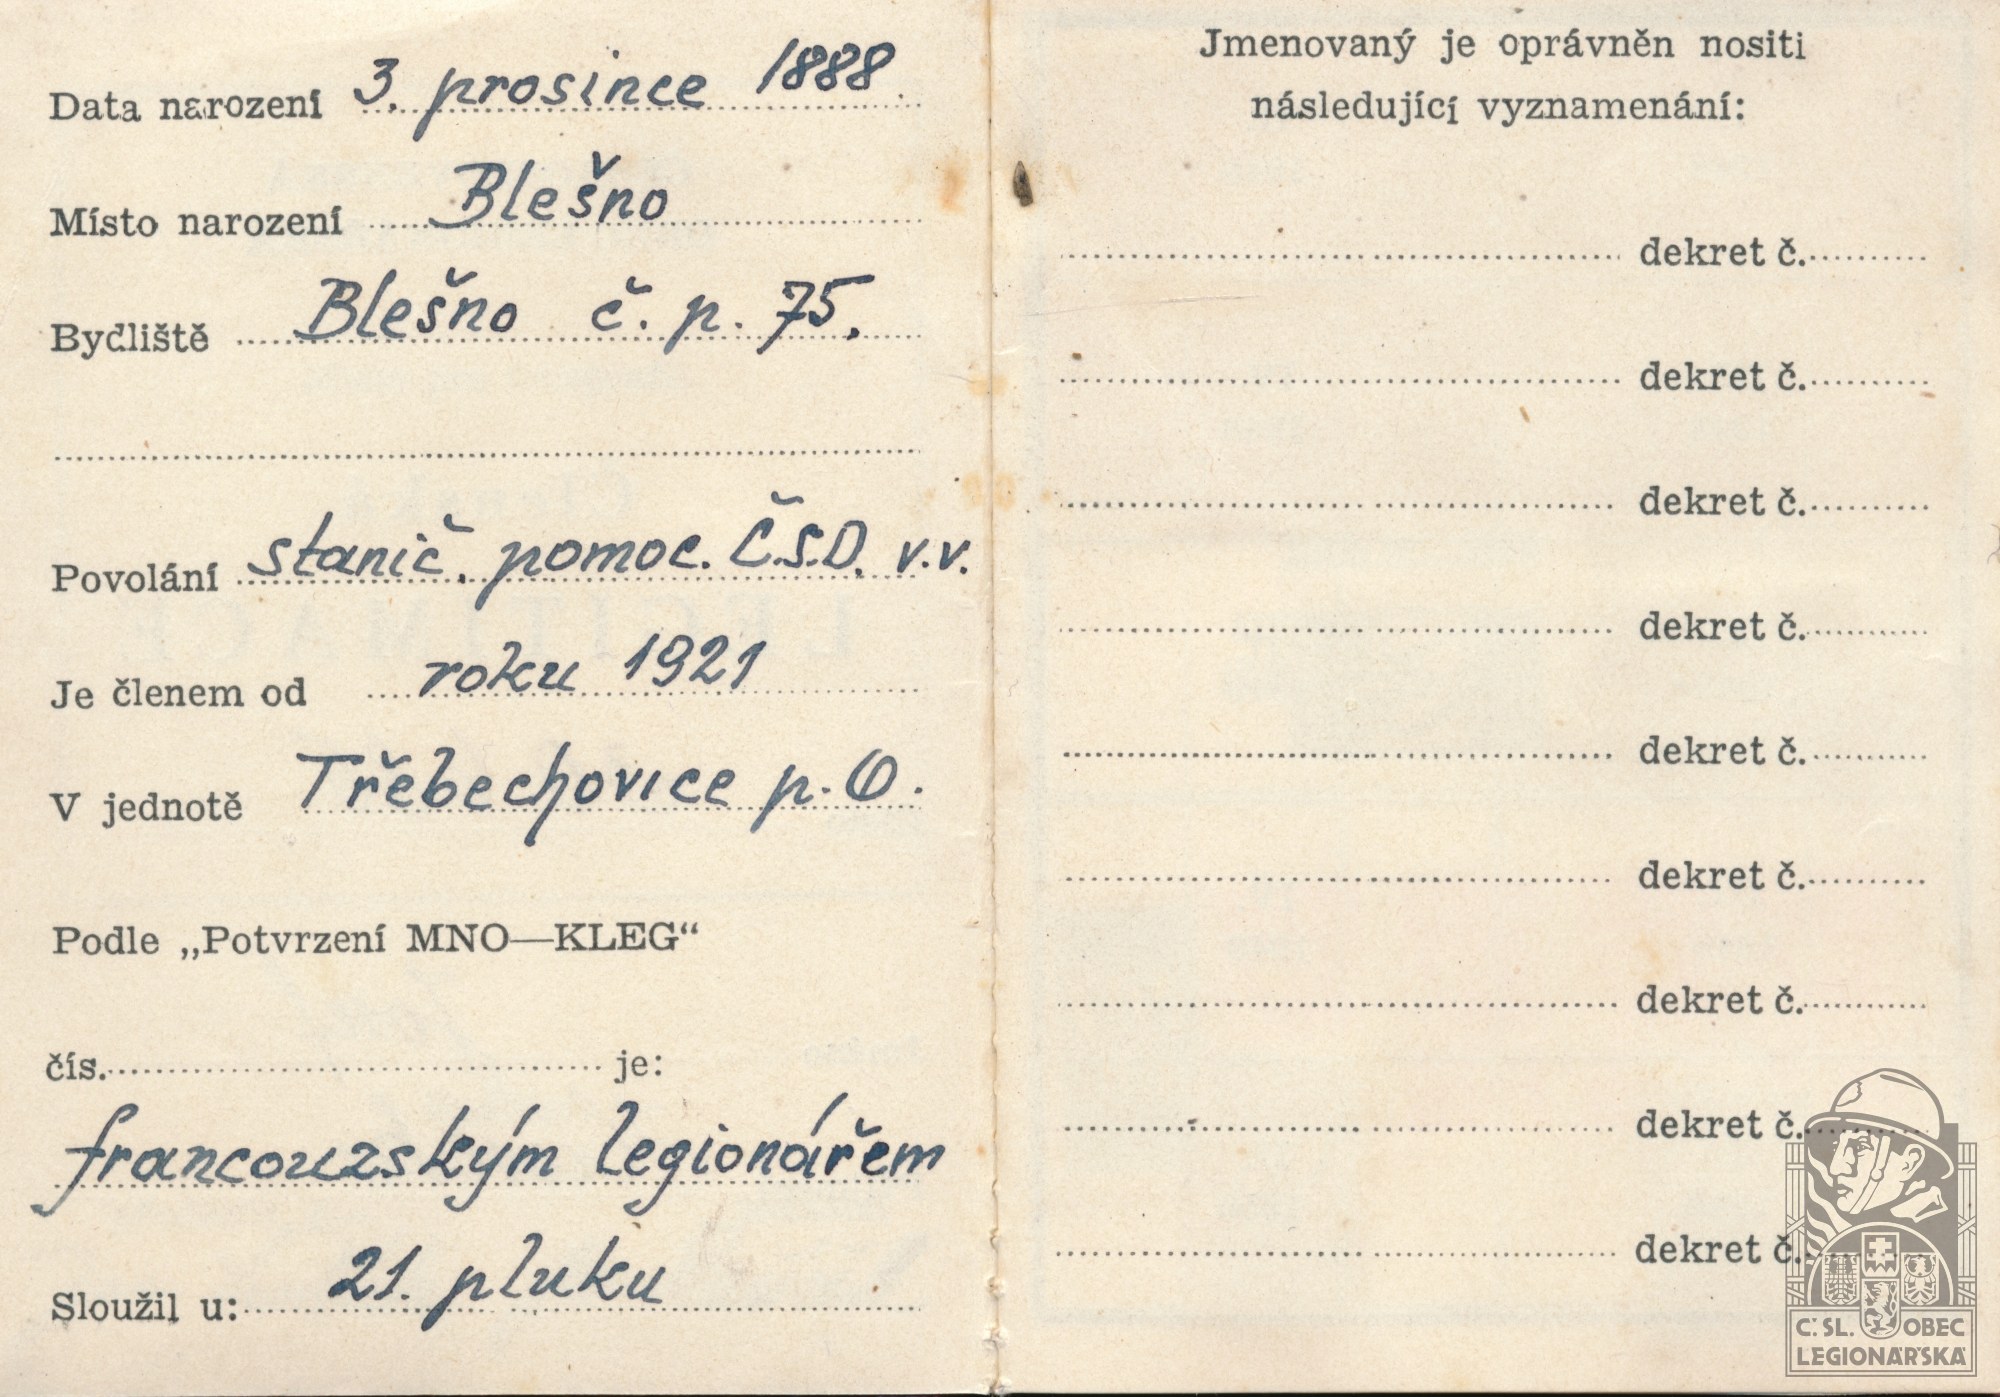 Data narození 3. prosince 1888.
Místo narození Blešno
Bydliště Blešno č. p. 75.
Povolání stanič. pomoc. Č.S.D. v.v.
Je členem od roku 1921
V jednotě Třebechovice p. O.
Podle „Potvrzení MNO—KLEG“
čís. je:
francouzským legionářem
Sloužil u: 21. pluku
Jmenovaný je oprávněn nositi
následující vyznamenání:
dekret č.
dekret č.
dekret č.
dekret č.
dekret č.
dekret č.
dekret č.
dekret č.
dekret č.
Č.SL. OBEC
LEGIONÁŘSKÁ